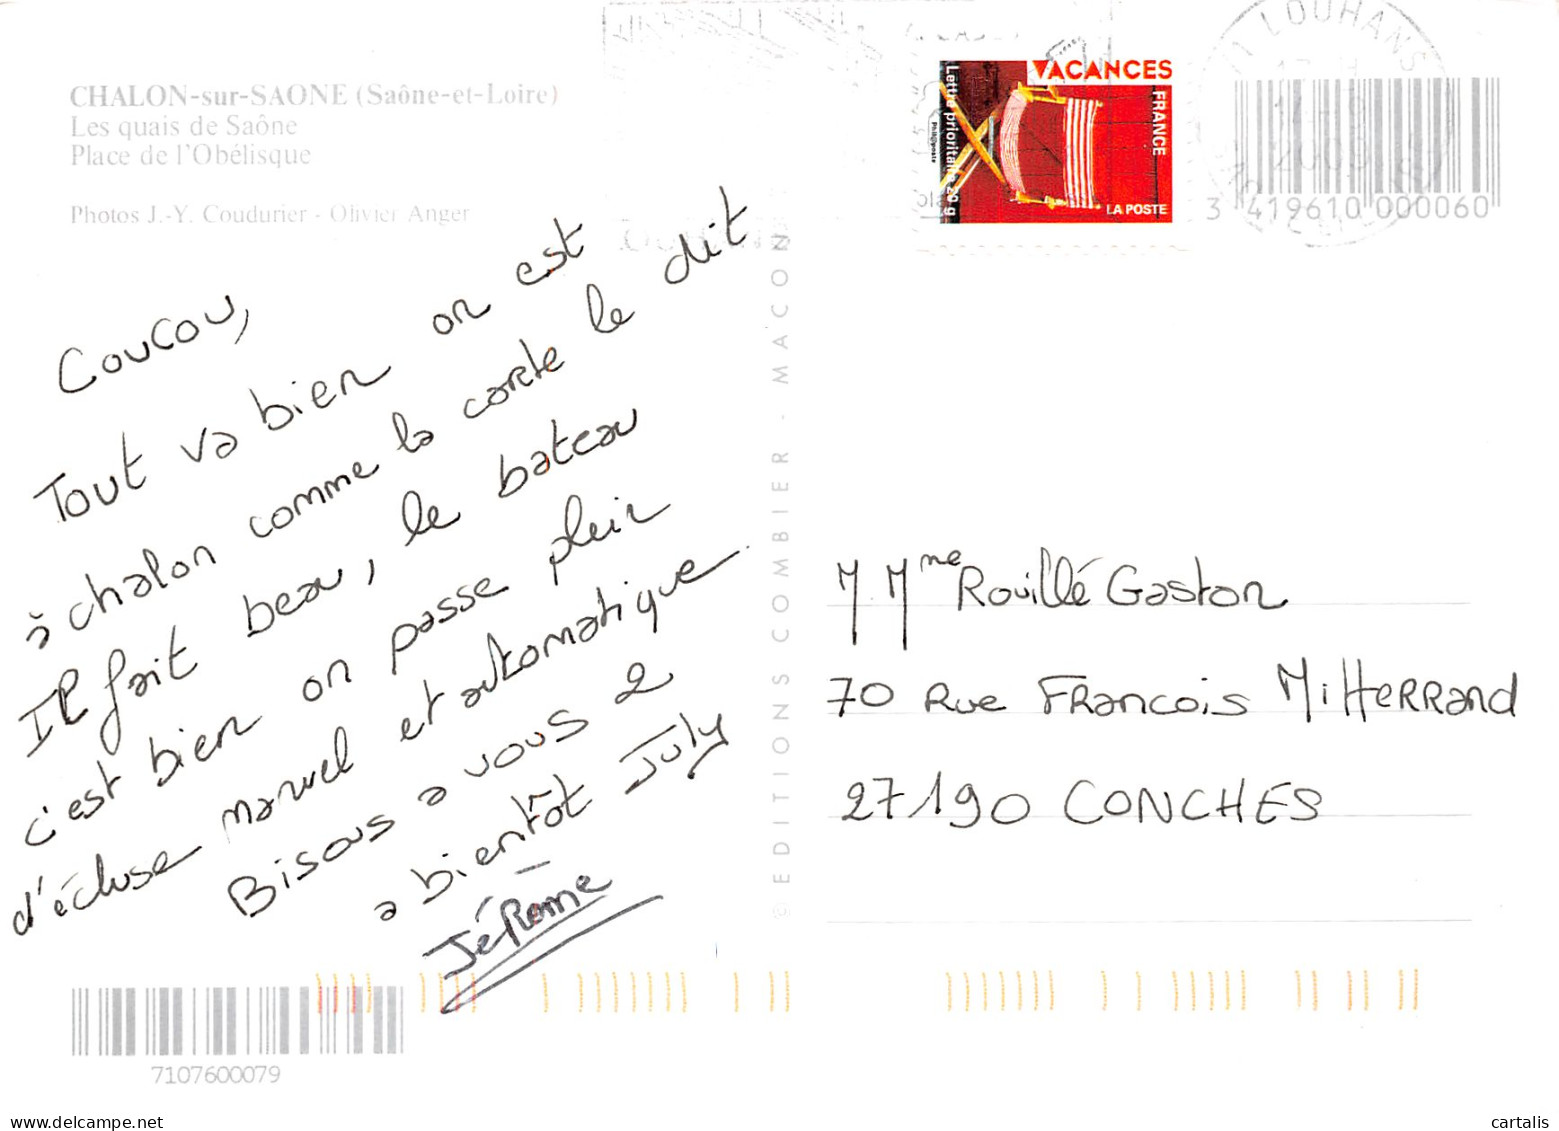 CHALON-sur-SAONE (Saône-et-Loire)
Les quais de Saône
Place de l'Obélisque
Photos J.-Y. Coudurier - Olivier Anger
Coucou,
Tout va bien on est
à chalon comme la carte le dit
Il fait beau, le bateau
c'est bien on passe plein
d'écluse manuel et automatique.
Bisous a vous 2
a bientôt July
Jérôme
7107600079
© EDITIONS COMBIER - MACON
VACANCES
FRANCE
Lettre prioritaire 20 g
Phil@poste
LA POSTE
LOUHANS
3 419610 000060
M Mme Rouillé Gaston
70 Rue Francois Mitterrand
27190 CONCHES
www.delcampe.net
cartalis